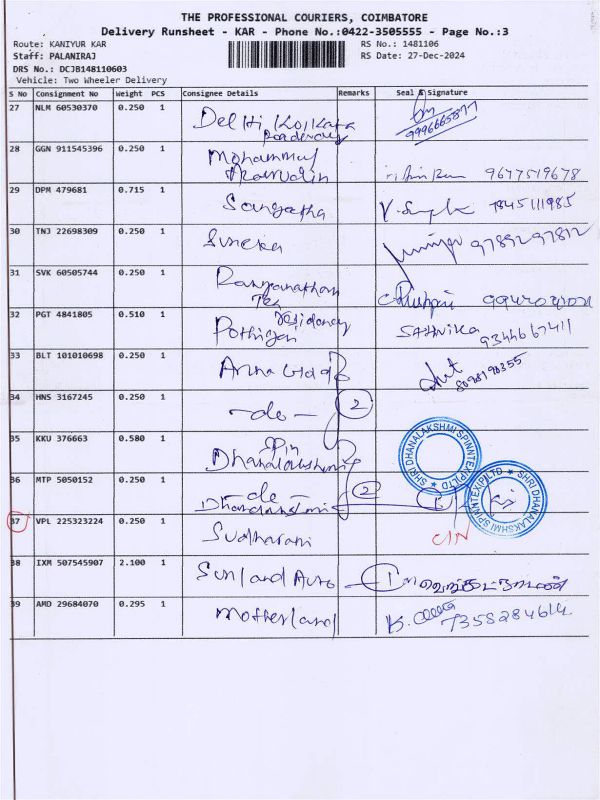 THE PROFESSIONAL COURIERS, COIMBATORE
Delivery Runsheet - KAR - Phone No.:0422-3505555 - Page No.:3
Route: KANIYUR KAR
RS No.: 1481106
Staff: PALANIRAJ
RS Date: 27-Dec-2024
DRS No.: DCJB148110603
Vehicle: Two Wheeler Delivery
S No Consignment No Weight PCS Consignee Details Remarks Seal & Signature
27 NLM 60530370 0.250 1 Delhi Kolkata
9996665877
28 GGN 911545396 0.250 1 Mohammed
9677519678
29 DPM 479681 0.715 1 Sangatha 7845111985
30 TNJ 22698309 0.250 1 Sineka 9789297812
31 SVK 60505744 0.250 1 Ranganathan
Tex
32 PGT 4841805 0.510 1 Residency
Pothigai SATHVIKA 9344667411
33 BLT 101010698 0.250 1 Anna
8098190355
34 HNS 3167245 0.250 1 -do- 2
35 KKU 376663 0.580 1 Spin
Dhanalakshmi
SHRI DHANALAKSHMI SPINNTEX(P)LTD
36 MTP 5050152 0.250 1 -do- 2
Dhanalakshmi
SHRI DHANALAKSHMI SPINNTEX(P)LTD
37 VPL 225323224 0.250 1 Sudharani C/N
38 IXM 507545907 2.100 1 Sunland Auto
39 AMD 29684070 0.295 1 Motherland 7358284614